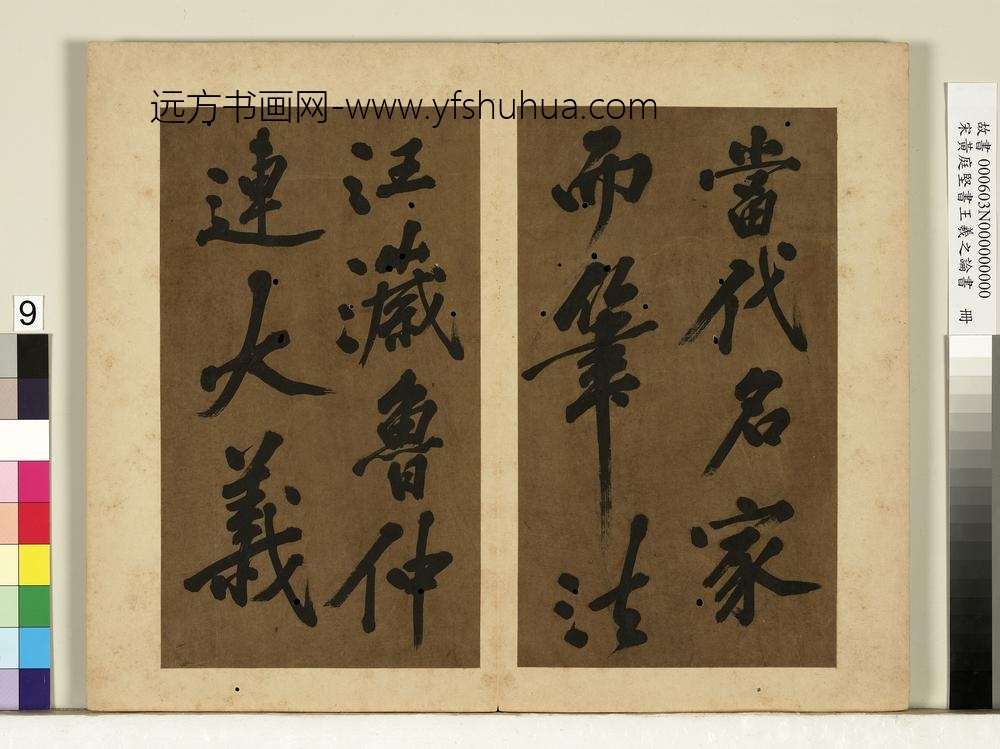 远方书画网-www.yfshuhua.com
當代名家
而筆法
汪濊魯仲
連大義
9
故書 000603N000000000
宋黃庭堅書王羲之論書 冊